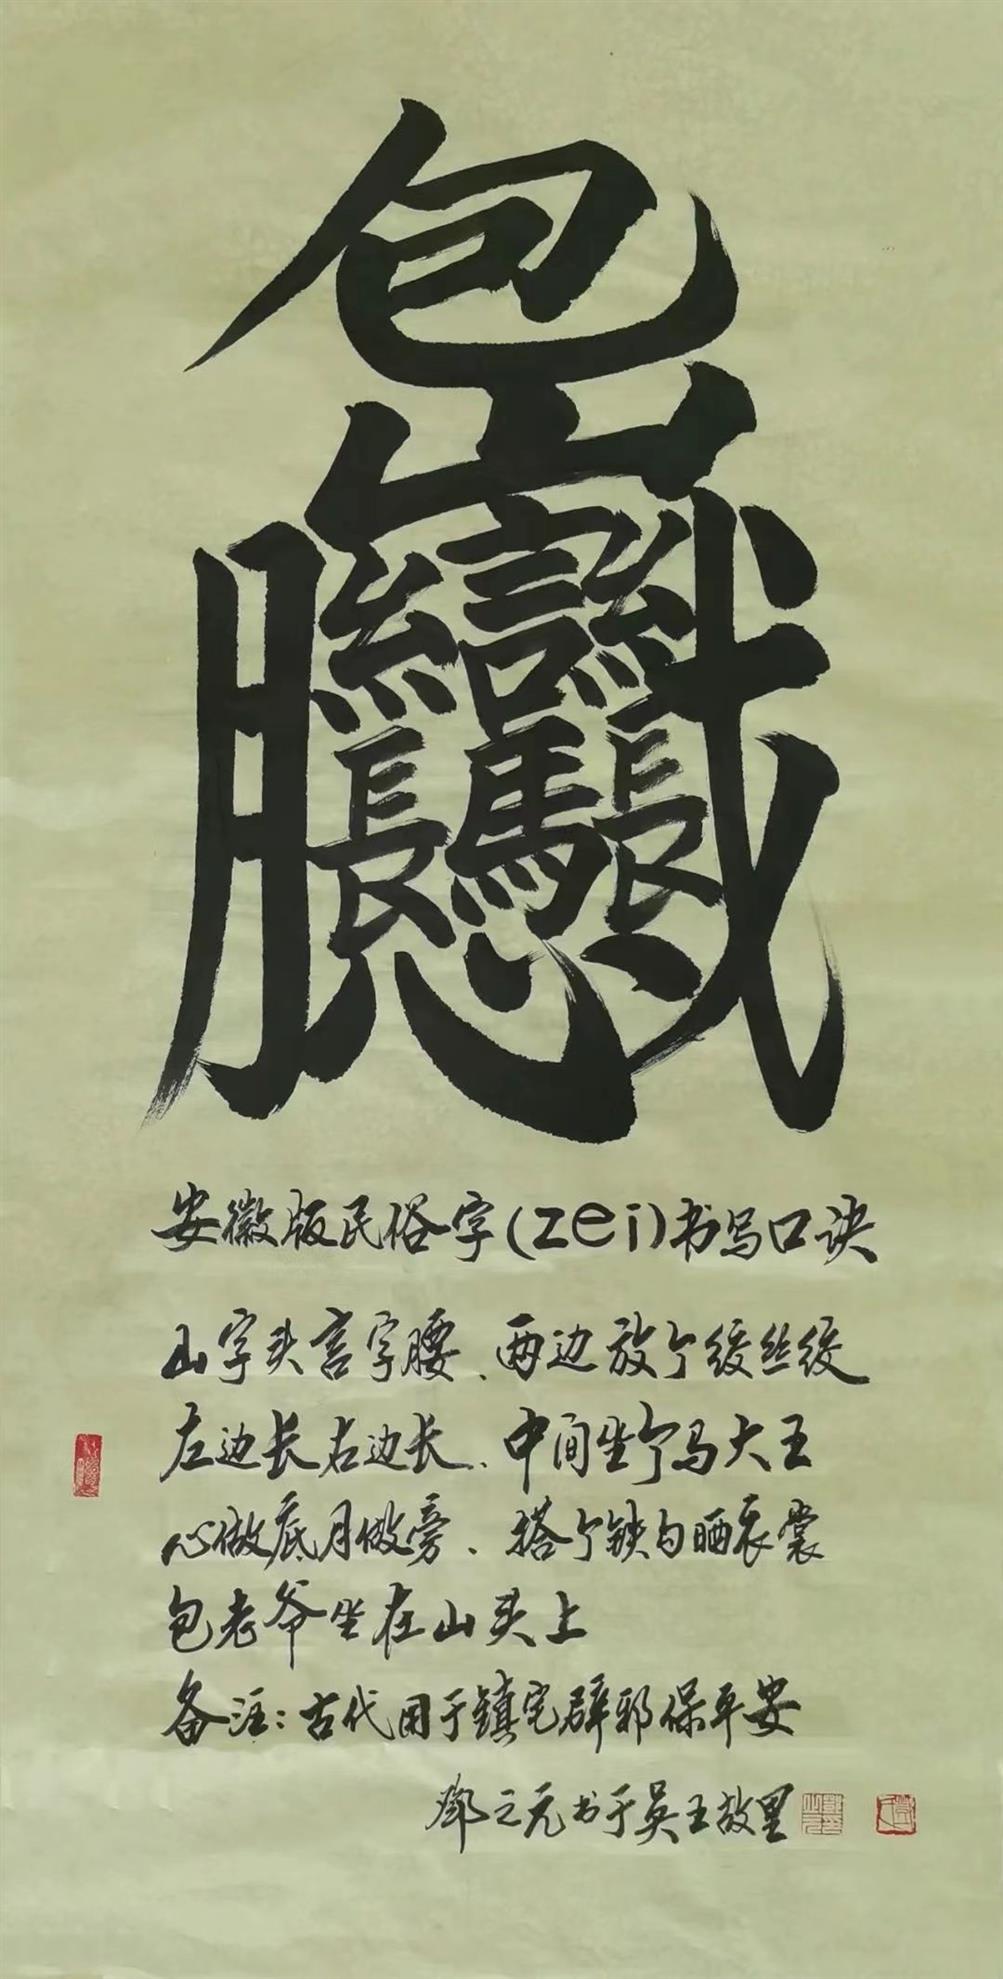 安徽版民俗字(zei)书写口诀
山字头言字腰、两边放个绞丝绞
左边长右边长、中间坐个马大王
心做底月做旁、搭个铁勾晒衣裳
包老爷坐在山头上
备注：古代用于镇宅辟邪保平安
邓之元书于英王故里